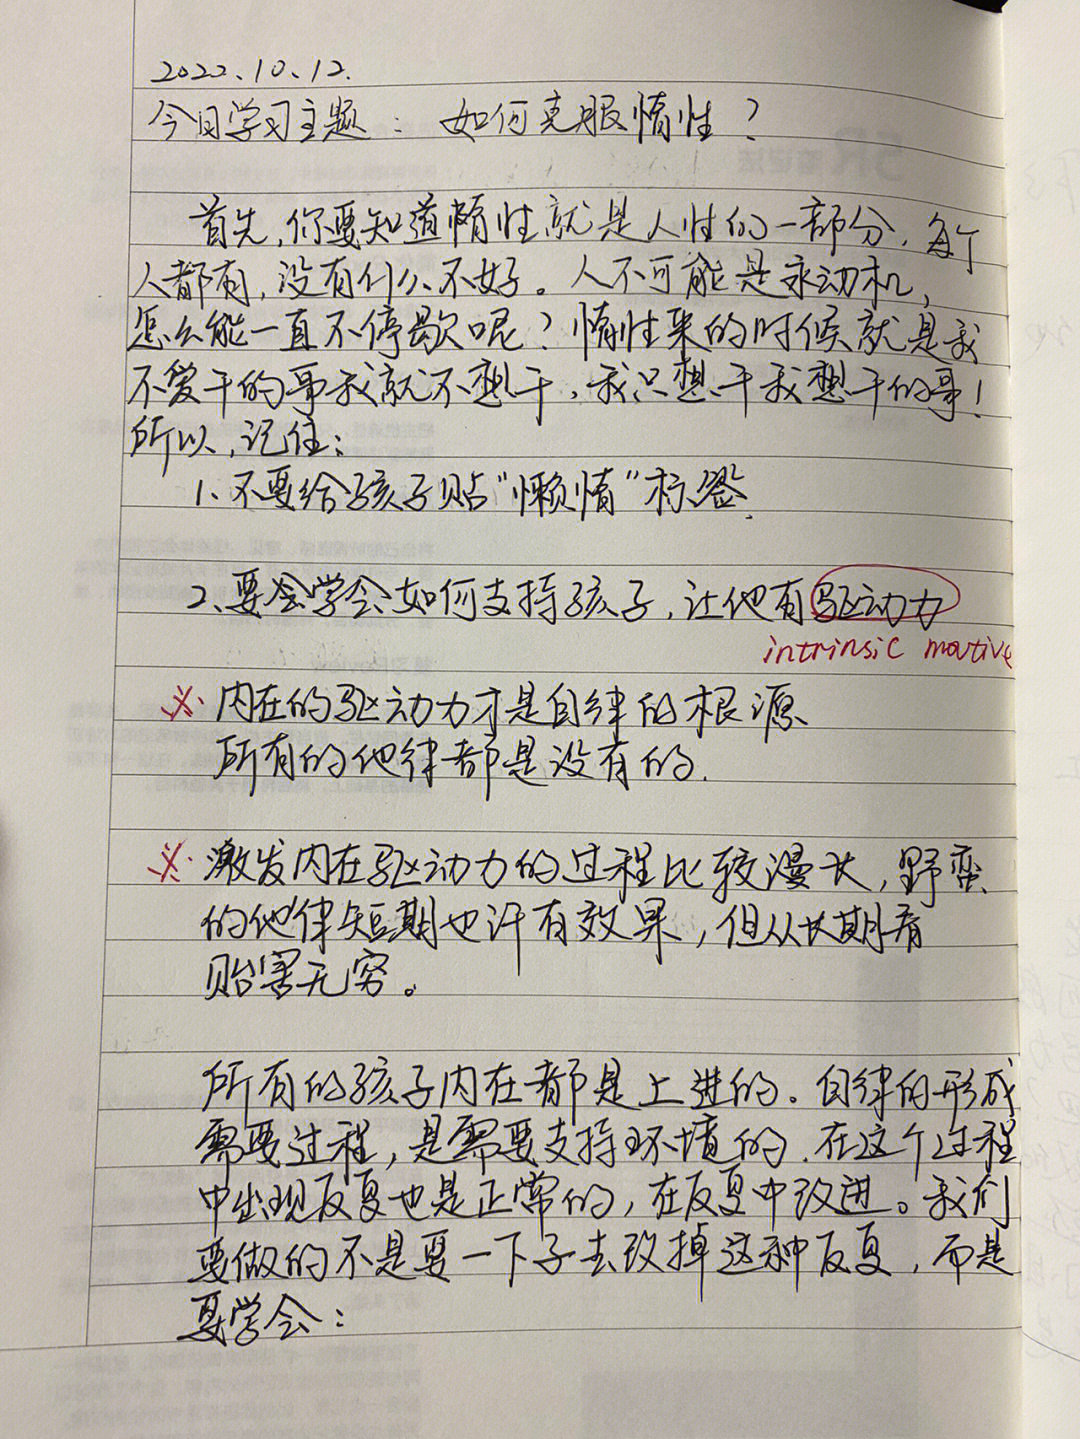 2022.10.12.
今日学习主题：如何克服惰性？
首先，你要知道惰性就是人性的一部分，每个
人都有，没有什么不好。人不可能是永动机，
怎么能一直不停歇呢？惰性来的时候就是我
不爱干的事我就不想干，我只想干我想干的事！
所以，记住：
1、不要给孩子贴“懒惰”标签.
2、要会学会如何支持孩子，让他有驱动力
intrinsic motive
※·内在的驱动力才是自律的根源
所有的他律都是没有的.
※·激发内在驱动力的过程比较漫长，野蛮
的他律短期也许有效果，但从长期看
贻害无穷。
所有的孩子内在都是上进的.自律的形成
需要过程，是需要支持环境的.在这个过程
中出现反复也是正常的，在反复中改进。我们
要做的不是要一下子去改掉这种反复，而是
要学会：